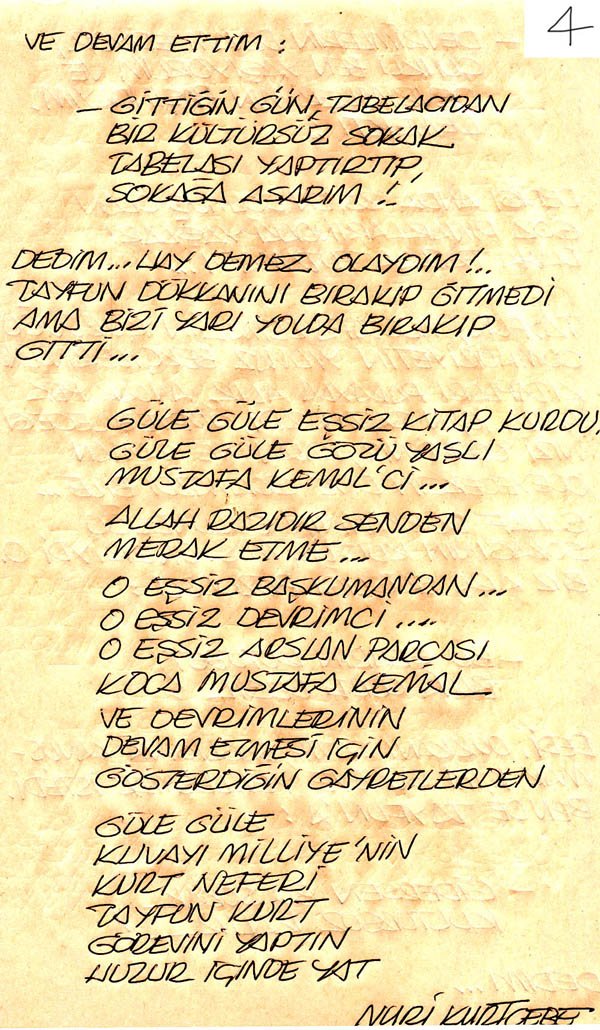 4
VE DEVAM ETTİM :
– GİTTİĞİN GÜN, TABELACIDAN
BİR KÜLTÜRSÜZ SOKAK
TABELASI YAPTIRTIP,
SOKAĞA ASARIM !..
DEDİM... HAY DEMEZ OLAYDIM !..
TAYFUN DÜKKANINI BIRAKIP GİTMEDİ
AMA BİZİ YARI YOLDA BIRAKIP
GİTTİ...
GÜLE GÜLE EŞSİZ KİTAP KURDU,
GÜLE GÜLE GÖZÜ YAŞLI
MUSTAFA KEMAL'Cİ...
ALLAH RAZIDIR SENDEN
MERAK ETME...
O EŞSİZ BAŞKUMANDAN...
O EŞSİZ DEVRİMCİ....
O EŞSİZ ARSLAN PARÇASI
KOCA MUSTAFA KEMAL
VE DEVRİMLERİNİN
DEVAM ETMESİ İÇİN
GÖSTERDİĞİN GAYRETLERDEN
GÜLE GÜLE
KUVAYI MİLLİYE'NİN
KURT NEFERİ
TAYFUN KURT
GÖREVİNİ YAPTIN
HUZUR İÇİNDE YAT
NURİ KURTCEBE